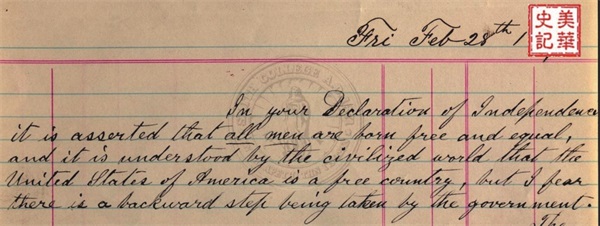 Fri Feb 28th 1
美華
史記
In your Declaration of Independence
it is asserted that all men are born free and equal,
and it is understood by the civilized world that the
United States of America is a free country, but I fear
there is a backward step being taken by the government.
The